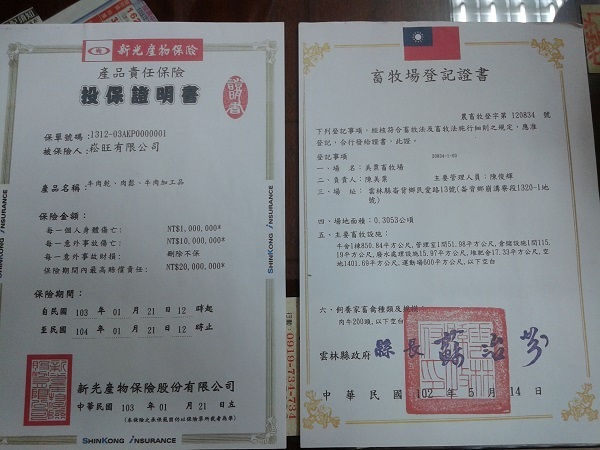 新光產物保險
產品責任保險
投保證明書
證明書
保單號碼：1312-03AKP0000001
被保險人：崧旺有限公司
產品名稱：牛肉乾、肉鬆、牛肉加工品
保險金額：
每一個人身體傷亡： NT$1,000,000*
每一意外事故傷亡： NT$10,000,000*
每一意外事故財損： 刪除不保
保險期間內最高賠償責任： NT$20,000,000*
保險期間：
自民國 103 年 01 月 21 日 12 時起
至民國 104 年 01 月 21 日 12 時止
新光產物保險股份有限公司
中華民國 103 年 01 月 21 日立
(本保險之承保範圍仍以保險單所載者為準)
SHINKONG INSURANCE
SHINKONG INSURANCE
SHINKONG INSURANCE
畜牧場登記證書
農畜牧登字第 120834 號
下列登記事項，經核符合畜牧法及畜牧法施行細則之規定，應准
登記，合行發給證書，此證。
登記事項
一、場 名：美農畜牧場
二、負責人：陳美葉 主要管理人員：陳俊輝
三、場 址：雲林縣崙背鄉民愛路13號(崙背鄉崩溝寮段1320-1地
號)
四、場地面積：0.3053公頃
五、主要畜牧設施：
牛舍1棟850.84平方公尺,管理室1間51.98平方公尺,倉儲設施1間115.
19平方公尺,廢水處理設施15.97平方公尺,堆肥舍17.33平方公尺,空
地1401.69平方公尺,運動場600平方公尺,以下空白
六、飼養家畜禽種類及規模：
肉牛200頭,以下空白
雲林縣政府 縣長 蘇治芬
中華民國 102 年 5 月 14 日
0919-734-73